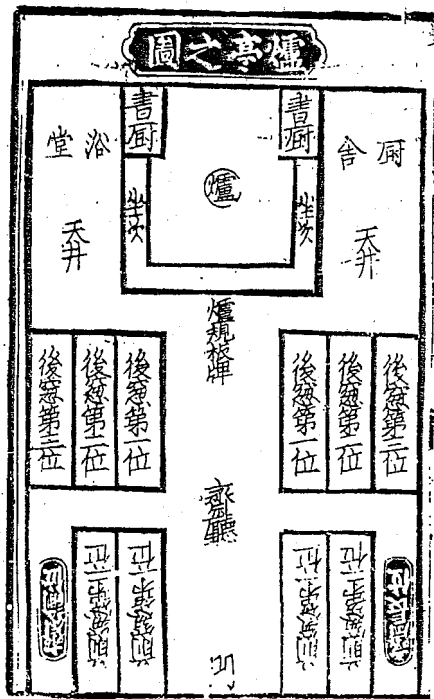 爐亭之圖
厨舍
書厨
書厨
浴堂
天井
坐次
爐
坐次
天井
爐規
牌
後窓第三位
後窓第二位
後窓第一位
後窓第一位
後窓第二位
後窓第三位
齋廳
前窓第二位
前窓第一位
前窓第一位
前窓第二位